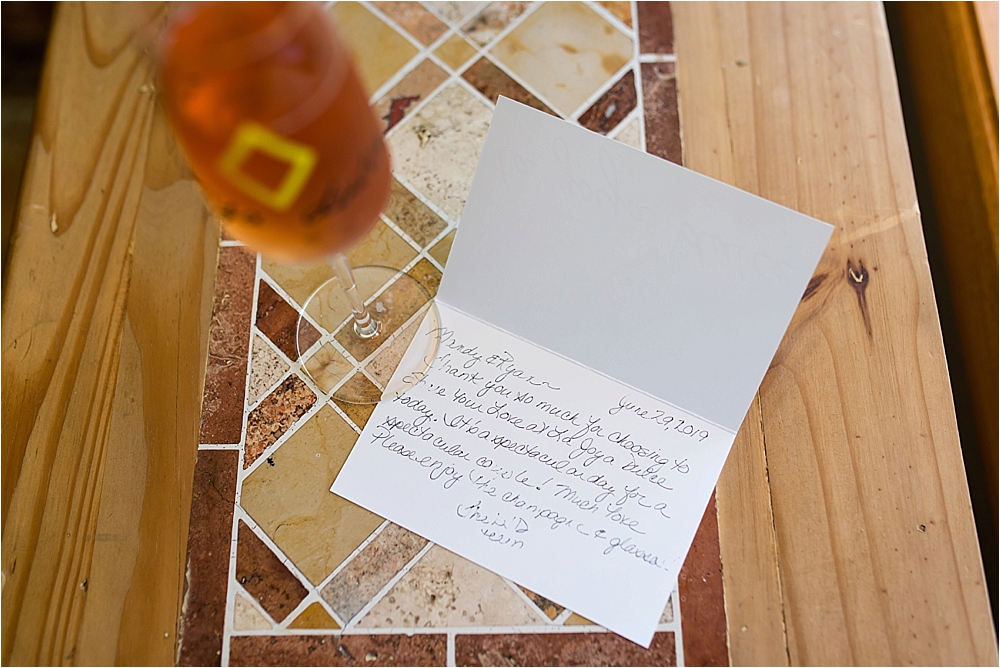 June 29, 2019
Mandy & Ryan ~
Thank you so much for choosing to
Your Love at La Joya Dulce
today. It's a spectacular day for a
spectacular couple! Much love
Please enjoy the champagne & glasses!